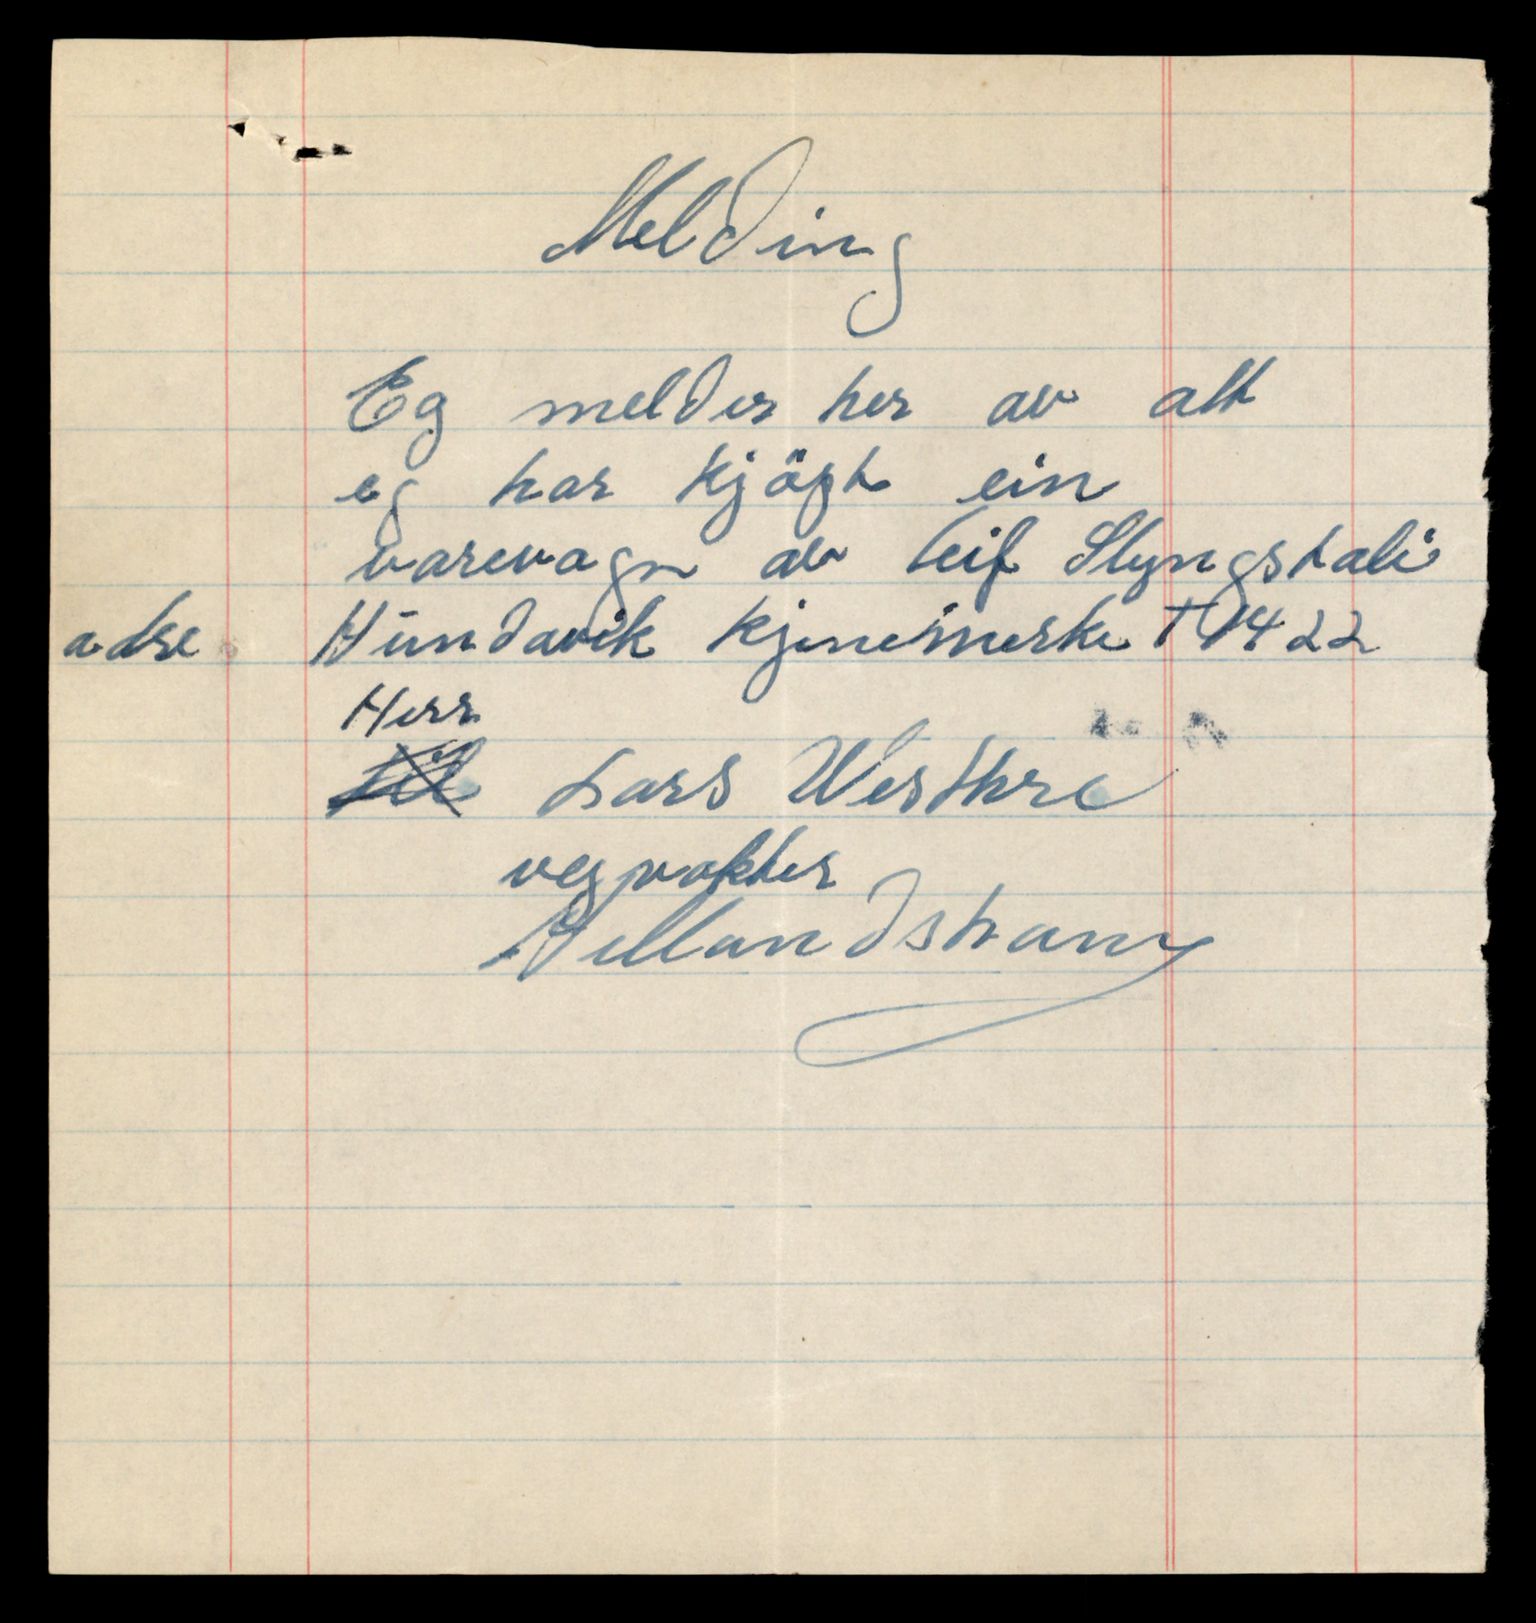 Melding
Eg melder her av att
eg har kjöpt ein
varevagn av Leif Slyngstali
adse Hundavik kjenemerke T 1422
Herr
til Lars Westhre
vegvokter
Hellandshamn